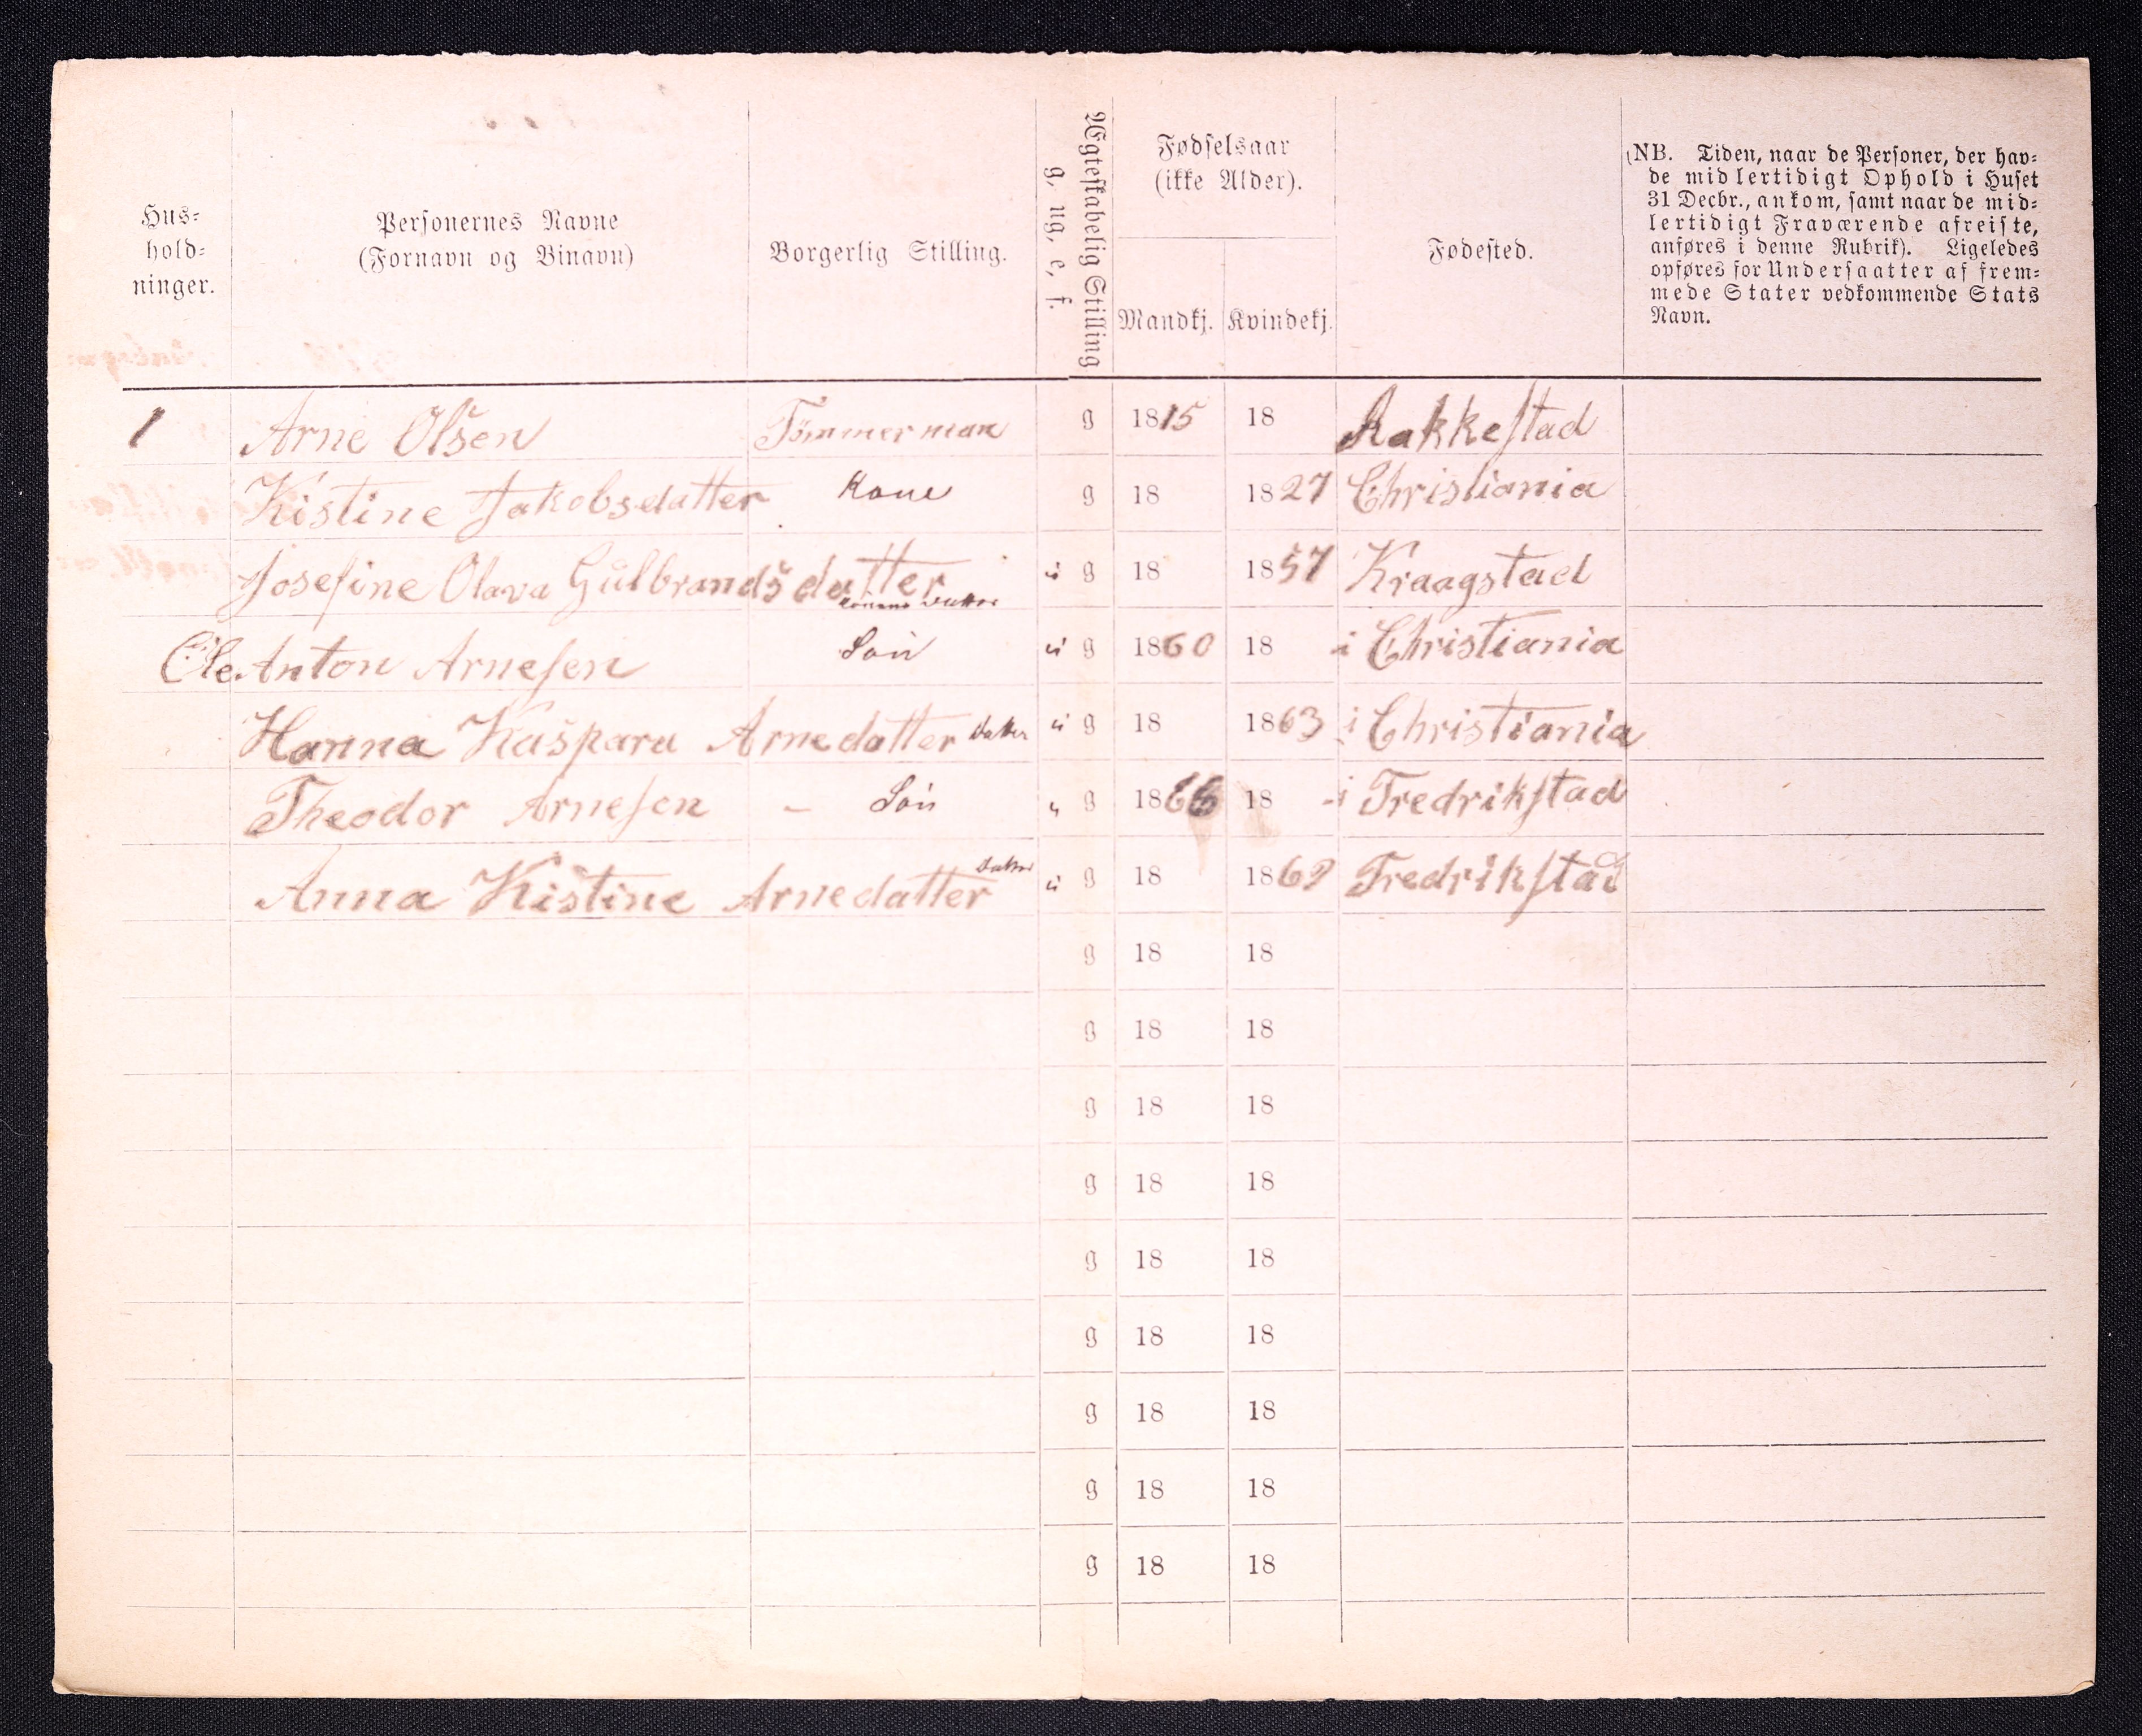 Hus-
hold-
ninger.
Personernes Navne
(Fornavn og Binavn)
Borgerlig Stilling.
Ægteskabelig Stilling
g, ug, e, f.
Fødselsaar
(ikke Alder).
Mandkj. Kvindekj.
Fødested.
(NB. Tiden, naar de Personer, der hav-
de midlertidigt Ophold i Huset
31 Decbr., ankom, samt naar de mid-
lertidigt Fraværende afreiste,
anføres i denne Rubrik). Ligeledes
opføres for Undersaatter af frem-
mede Stater vedkommende Stats
Navn.
1 Arne Olsen Tömmerman g 1815 18 Rakkestad
Kistine Jakobsdatter Kone g 18 1827 Christiania
Josefine Olava Gulbrandsdatter Konens Datter u g 18 1857 Kraagstad
Ole Anton Arnesen Søn u g 1860 18 i Christiania
Hanna Kaspara Arnedatter Datter u g 18 1863 i Christiania
Theodor Arnesen - Søn u g 1866 18 - i Fredrikstad
Anna Kistine Arnedatter Datter u g 18 1869 Fredrikstad
g 18 18
g 18 18
g 18 18
g 18 18
g 18 18
g 18 18
g 18 18
g 18 18
g 18 18